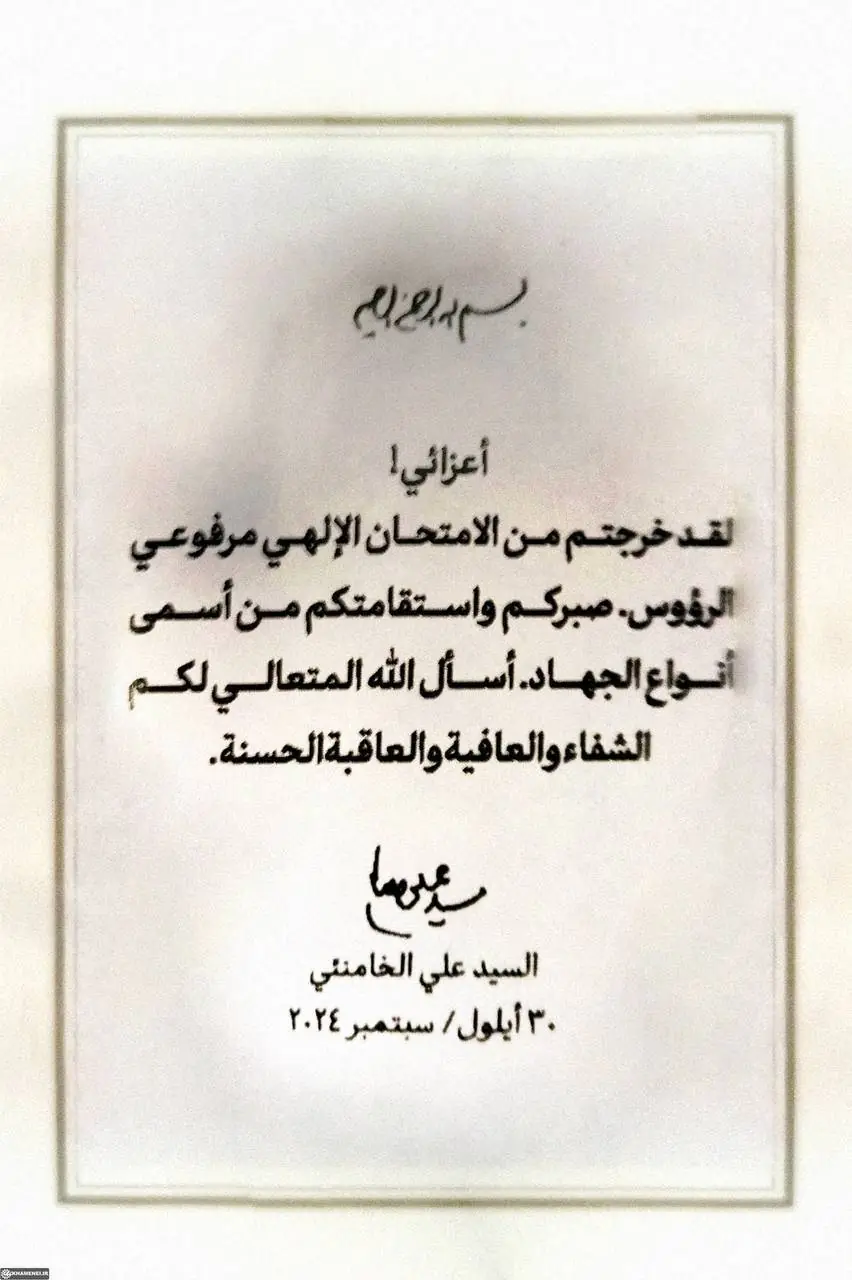 بسم الله الرحمن الرحيم
أعزائي!
لقد خرجتم من الامتحان الإلهي مرفوعي
الرؤوس. صبركم واستقامتكم من أسمى
أنواع الجهاد. أسأل الله المتعالي لكم
الشفاء والعافية والعاقبة الحسنة.
السيد علي الخامنئي
٣٠ أيلول/ سبتمبر ٢٠٢٤
KHAMENEI.IR